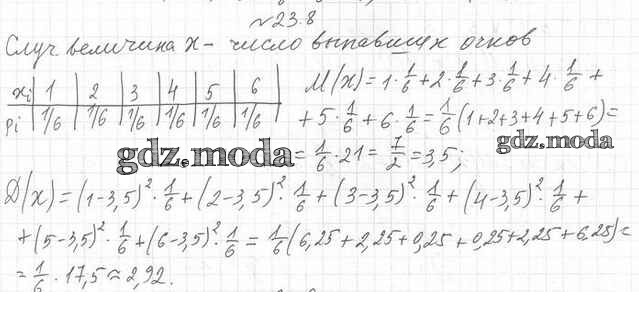 №23.8
Случ величина X - число выпавших очков
xi | 1 | 2 | 3 | 4 | 5 | 6
pi | 1/6 | 1/6 | 1/6 | 1/6 | 1/6 | 1/6
M(x) = 1·1/6 + 2·1/6 + 3·1/6 + 4·1/6 +
+ 5·1/6 + 6·1/6 = 1/6(1+2+3+4+5+6) =
= 1/6·21 = 7/2 = 3,5;
gdz.moda
gdz.moda
D(x) = (1-3,5)²·1/6 + (2-3,5)²·1/6 + (3-3,5)²·1/6 + (4-3,5)²·1/6 +
+ (5-3,5)²·1/6 + (6-3,5)²·1/6 = 1/6(6,25+2,25+0,25+0,25+2,25+6,25) =
= 1/6·17,5 ≈ 2,92.